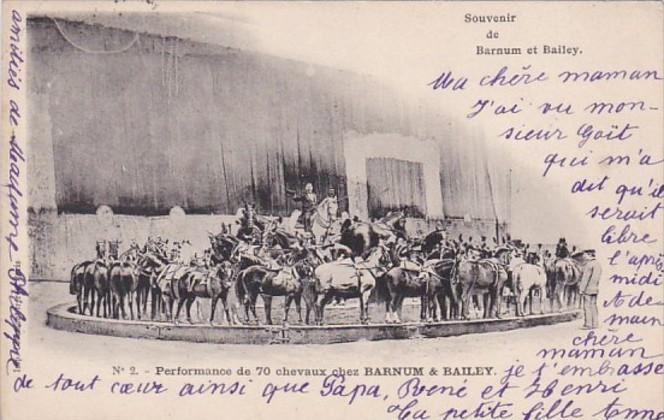 Souvenir
de
Barnum et Bailey.
Ma chère maman
J'ai vu mon-
sieur Goit
qui m'a
dit qu'il
serait
libre
l'après
midi
de
main
chère
maman
N° 2. - Performance de 70 chevaux chez BARNUM & BAILEY.
je t'embrasse
de tout cœur ainsi que Papa, René et Henri
Ta petite fille Anne
amitiés de